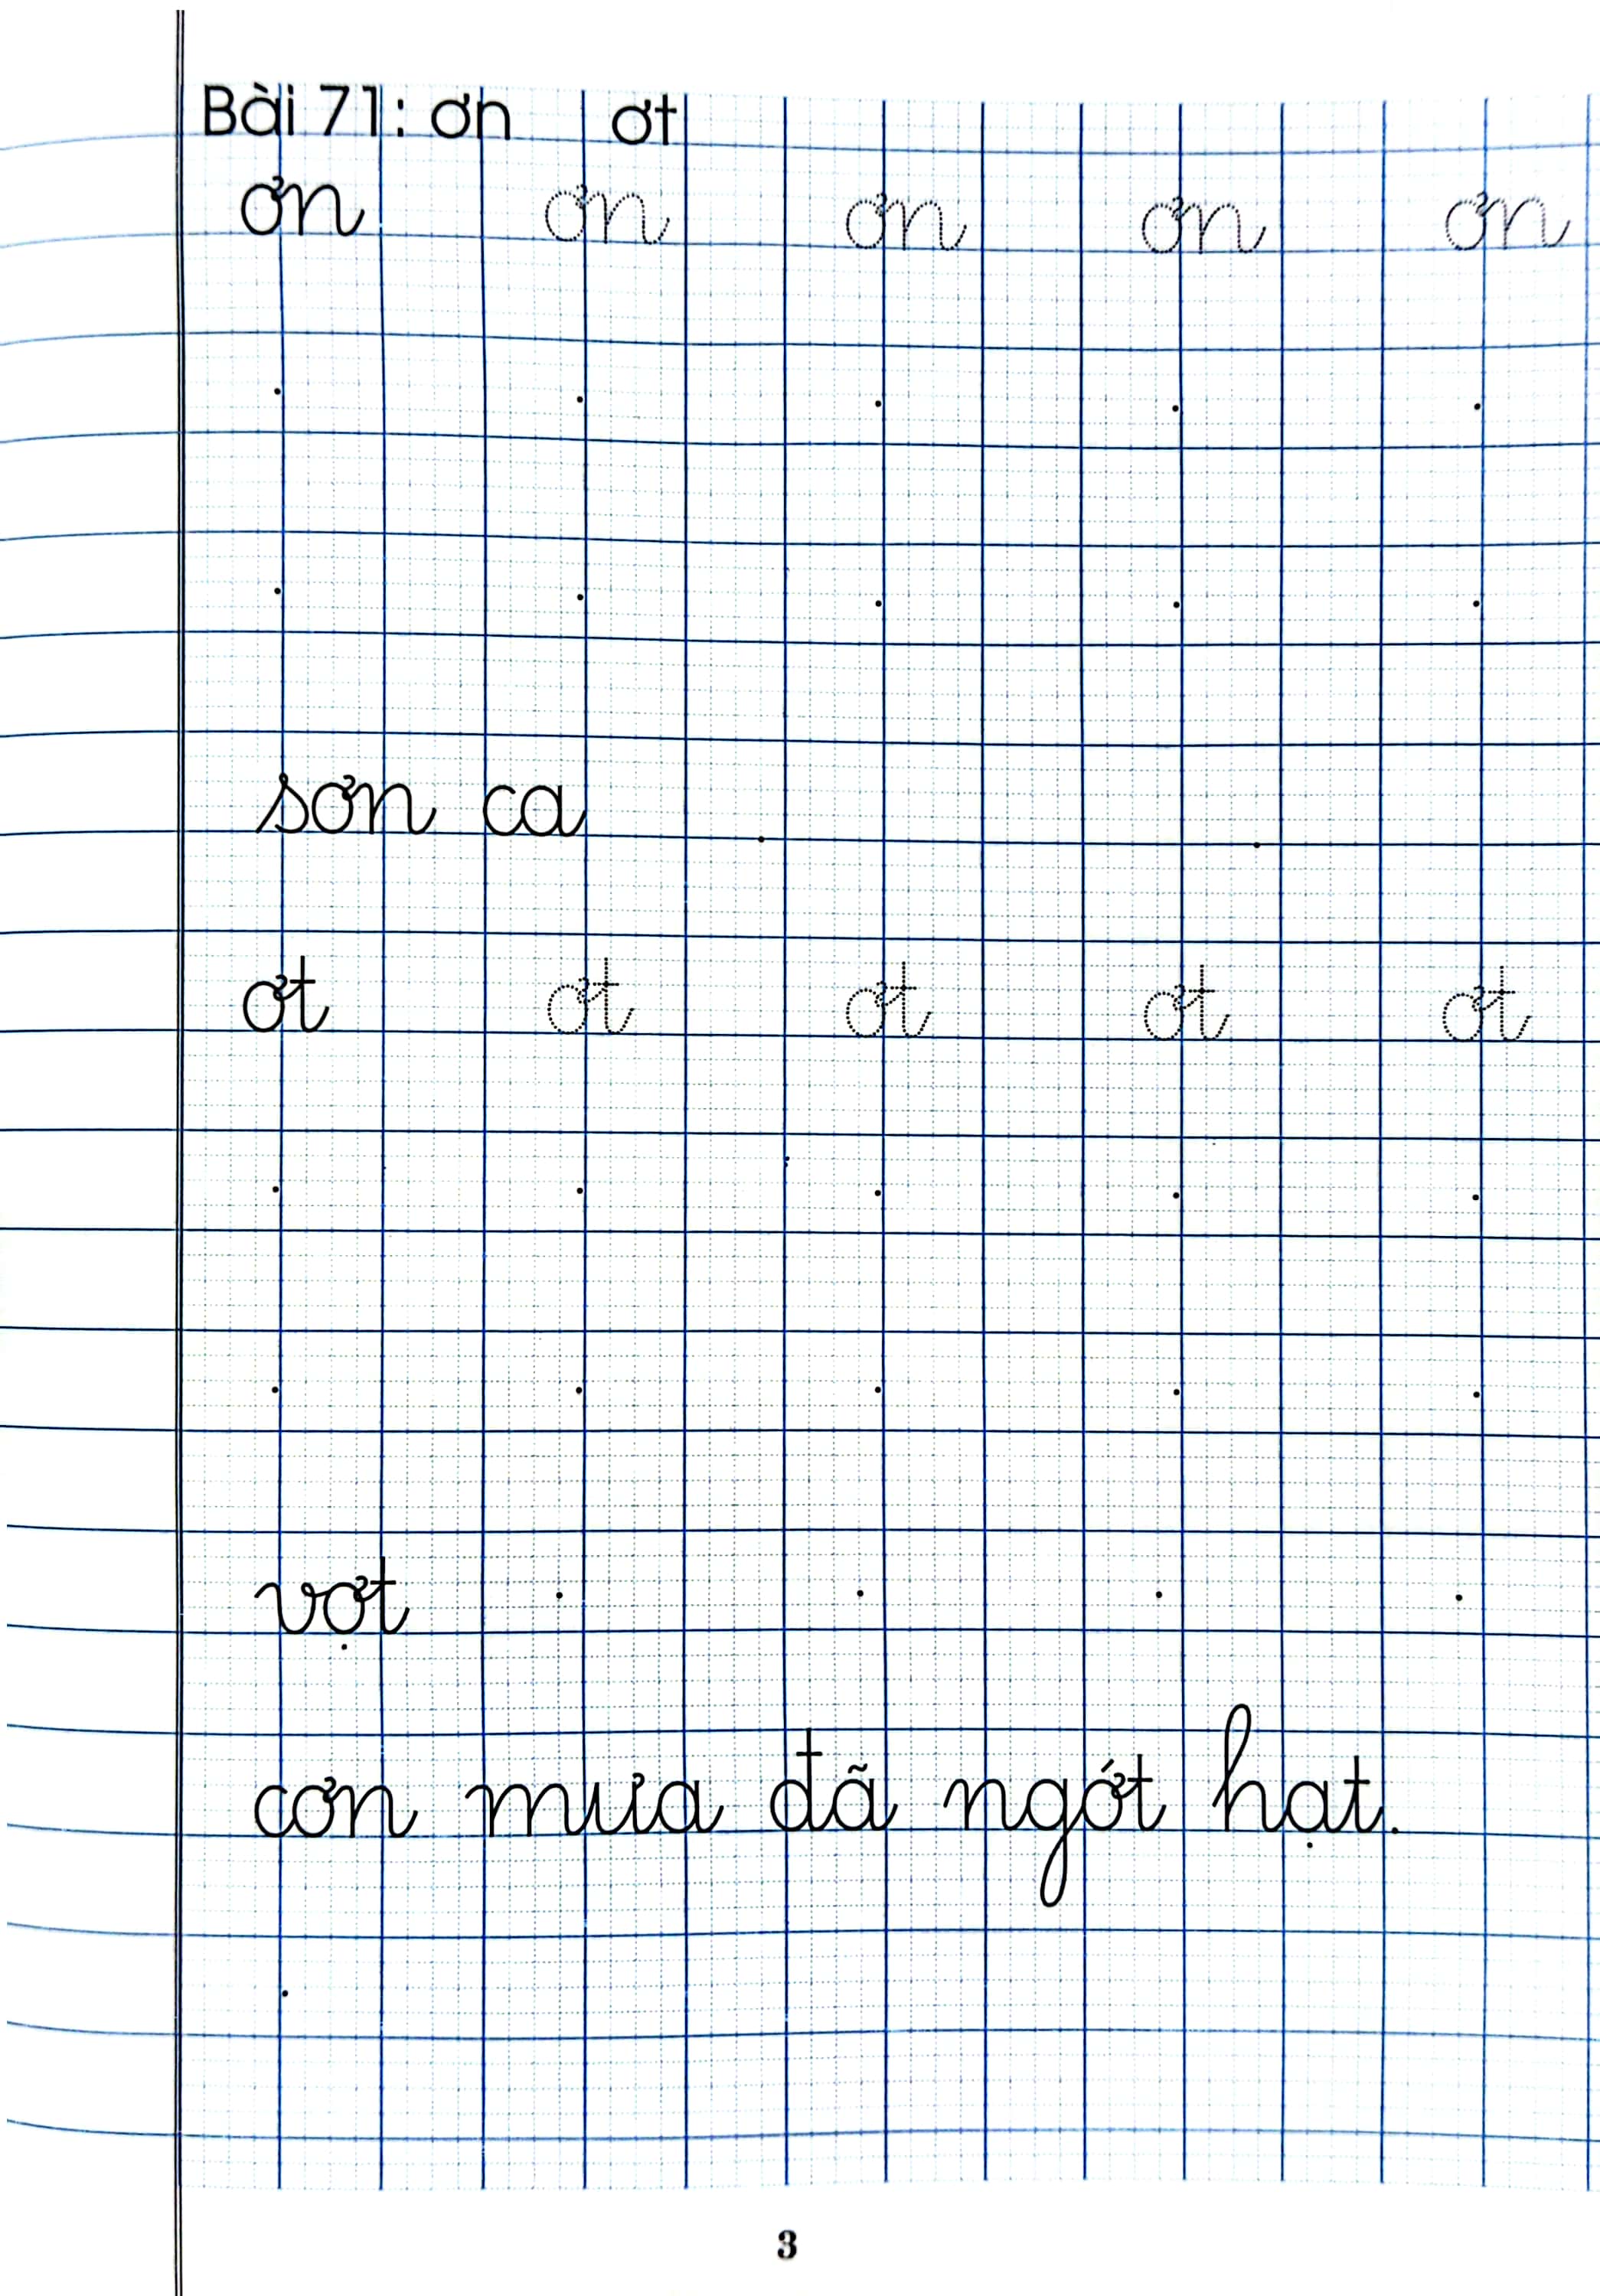 Bài 71: ơn ơt
ơn ơn ơn ơn ơn
sơn ca
ơt ơt ơt ơt ơt
vợt
cơn mưa đã ngớt hạt.
3